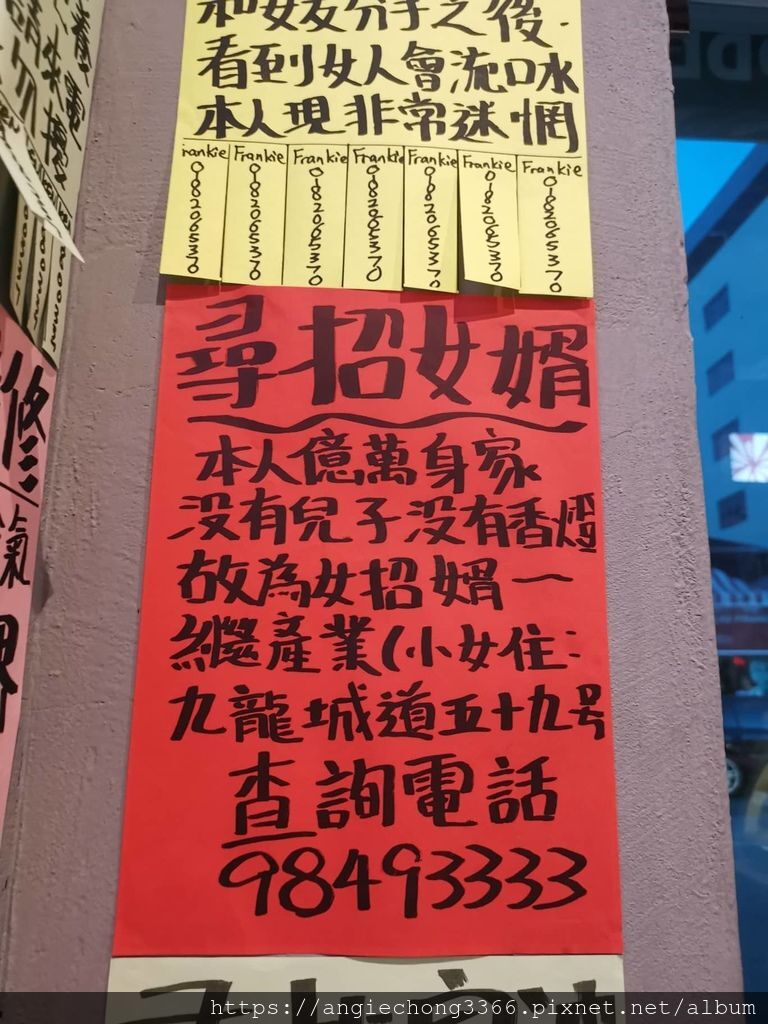 和女友分手之後
看到女人會流口水
本人現非常迷惘
rankie Frankie Frankie Frankie Frankie Frankie Frankie
0182065370 0182065370 0182065370 0182065370 0182065370 0182065370 0182065370
尋招女婿
本人億萬身家
没有兒子没有香燈
故為女招婿一
繼產業(小女住:
九龍城道五十九號
查詢電話
98493333
修
氣
界
https://angiechong3366.pixnet.net/album